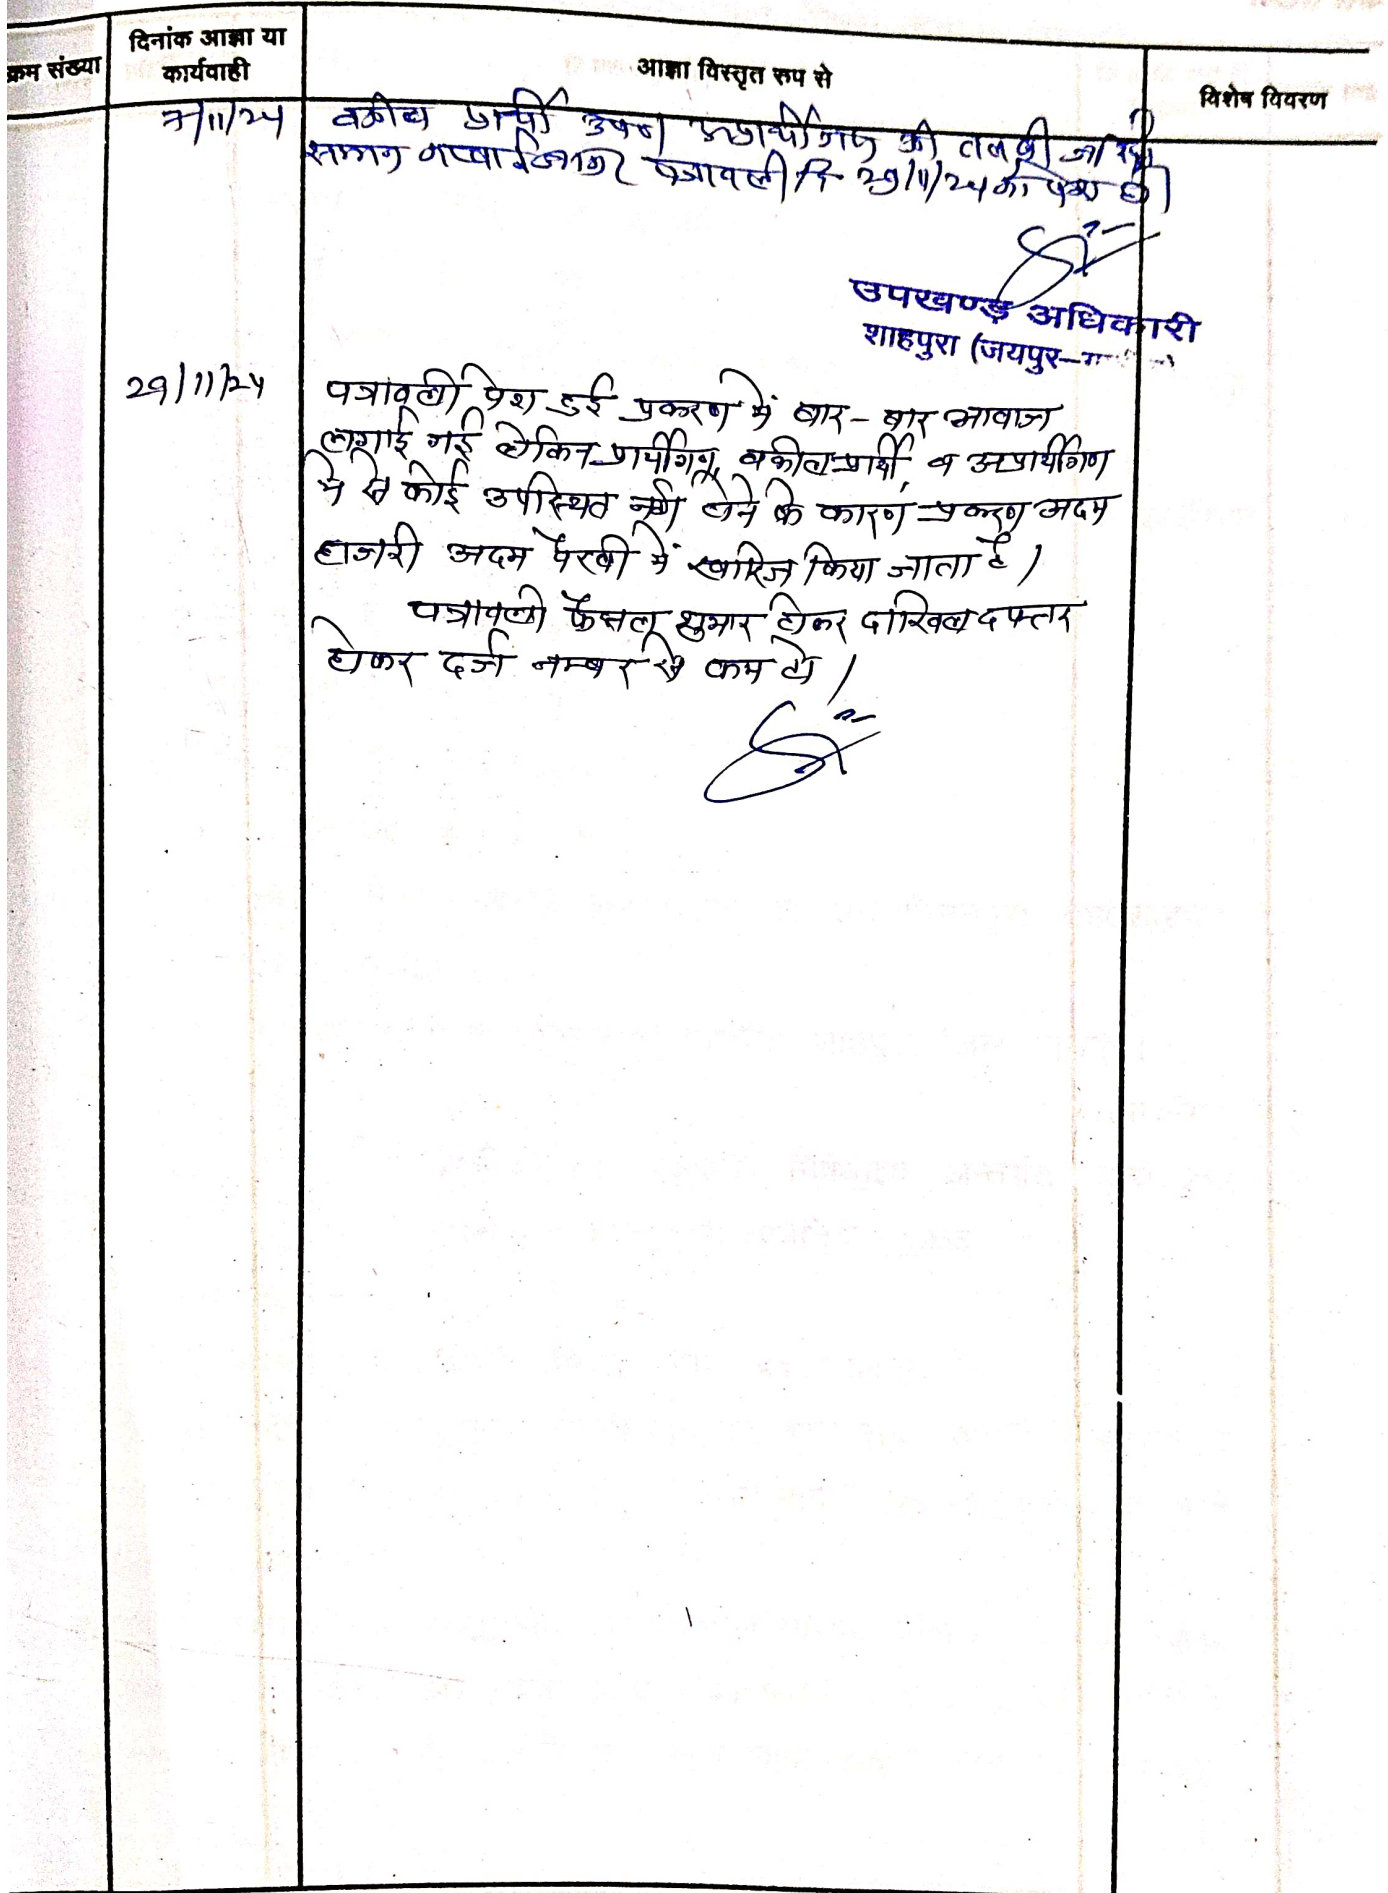 क्रम संख्या
दिनांक आज्ञा या
कार्यवाही
आज्ञा विस्तृत रुप से
विशेष विवरण
7/11/24
वकील प्रार्थी उप० अप्रार्थीगण की तलबी जारी
पत्रावली दि 29/11/24 को पेश हो।
उपखण्ड अधिकारी
शाहपुरा (जयपुर-
29/11/24
पत्रावली पेश हुई प्रकरण में बार-बार आवाज
लगाई गई लेकिन प्रार्थीगण, वकील प्रार्थी, व अप्रार्थीगण
मे से कोई उपस्थित नही होने के कारण प्रकरण अदम
हाजरी अदम पैरवी में खारिज किया जाता है।
पत्रावली फैसल शुमार होकर दाखिल दफ्तर
होकर दर्ज नम्बर से कम हो।